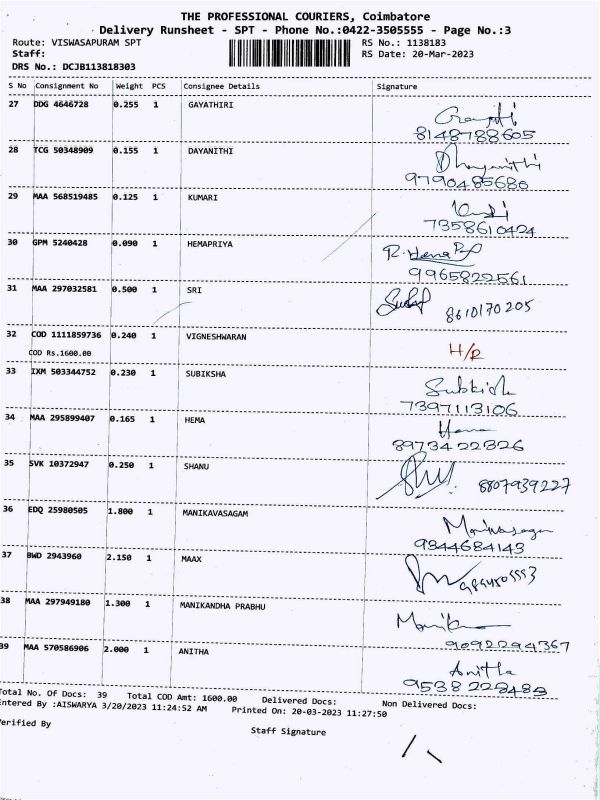 THE PROFESSIONAL COURIERS, Coimbatore
Delivery Runsheet - SPT - Phone No.:0422-3505555 - Page No.:3
Route: VISWASAPURAM SPT RS No.: 1138183
Staff: RS Date: 20-Mar-2023
DRS No.: DCJB113818303
S No Consignment No Weight PCS Consignee Details Signature
27 DDG 4646728 0.255 1 GAYATHIRI
8148788605
28 TCG 50348909 0.155 1 DAYANITHI Dhayanithi
9790485680
29 MAA 568519485 0.125 1 KUMARI
7358610424
30 GPM 5240428 0.090 1 HEMAPRIYA R. Hema
9965822561
31 MAA 297032581 0.500 1 SRI
8610170205
32 COD 1111859736 0.240 1 VIGNESHWARAN H/R
COD Rs.1600.00
33 IXM 503344752 0.230 1 SUBIKSHA
7397113106
34 MAA 295899407 0.165 1 HEMA Hema
8973422326
35 SVK 10372947 0.250 1 SHANU 8807939227
36 EDQ 25980505 1.800 1 MANIKAVASAGAM
9344684143
37 BWD 2943960 2.150 1 MAAX
38 MAA 297949180 1.300 1 MANIKANDHA PRABHU
9092294367
39 MAA 570586906 2.000 1 ANITHA Anitha
9538228483
Total No. Of Docs: 39 Total COD Amt: 1600.00 Delivered Docs: Non Delivered Docs:
Entered By :AISWARYA 3/20/2023 11:24:52 AM Printed On: 20-03-2023 11:27:50
Verified By Staff Signature